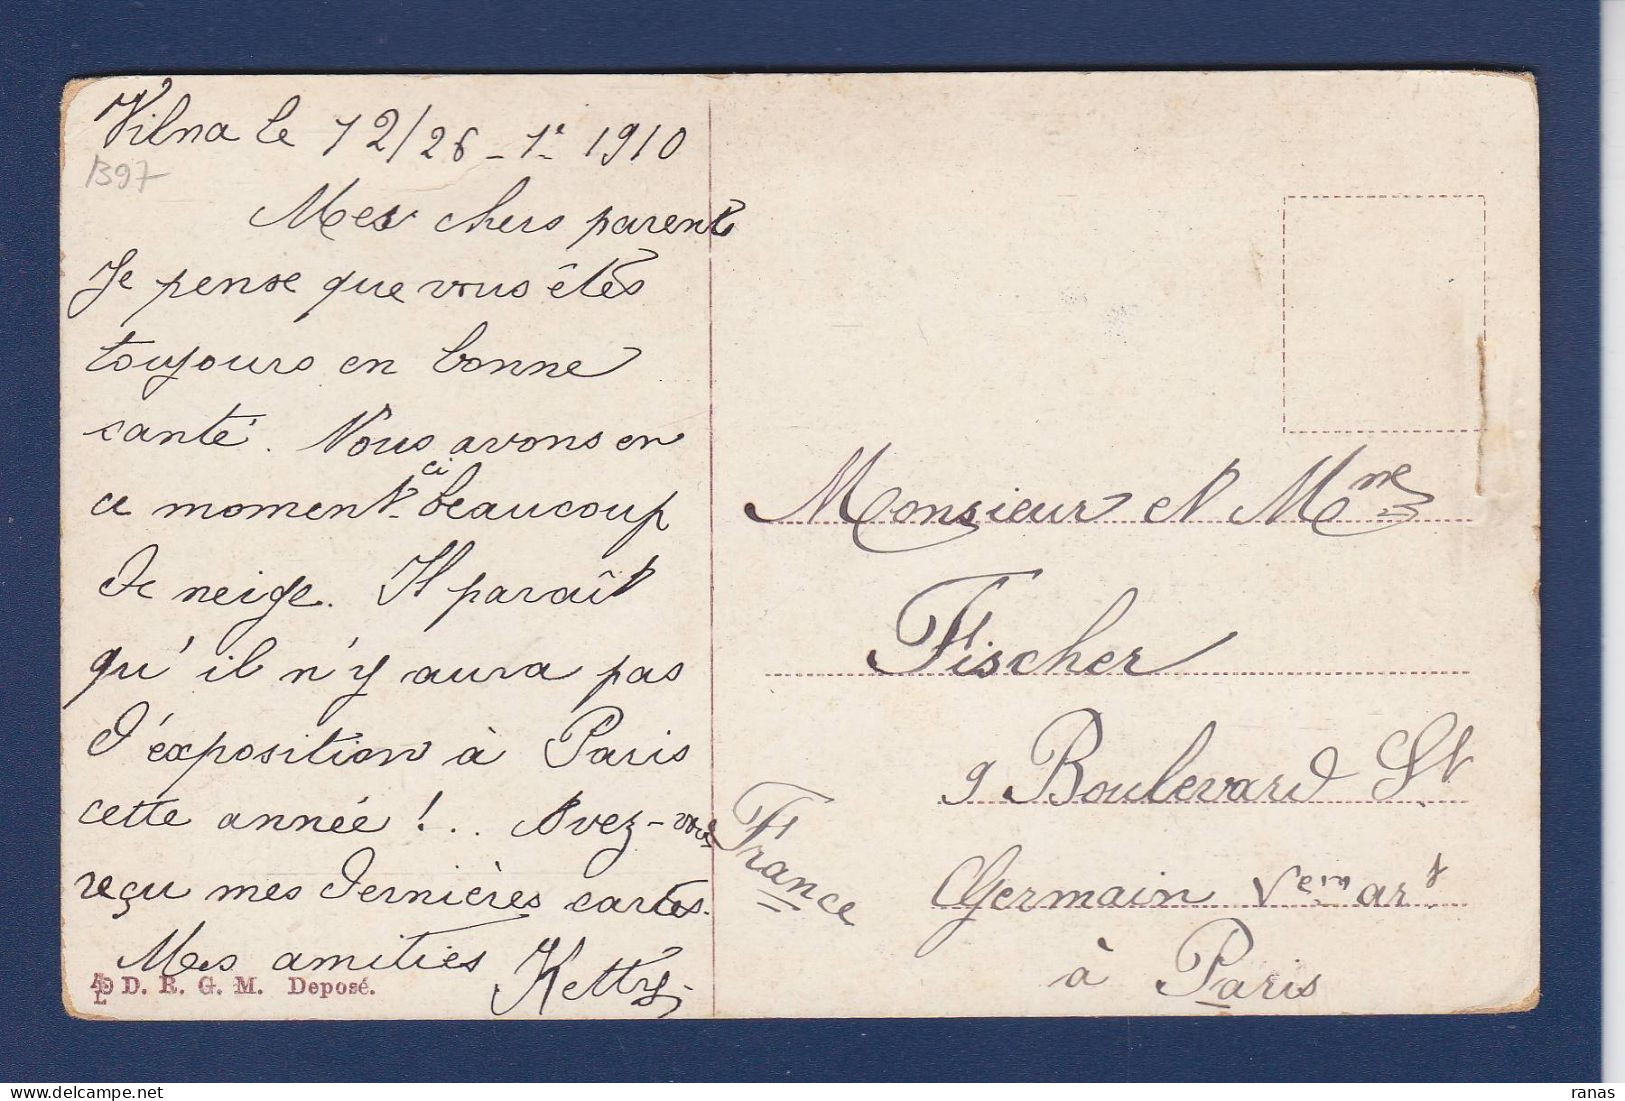 Vilna le 12/26 - 1e 1910
B97
Mes chers parent
Je pense que vous êtés
toujours en bonne
santé. Nous avons en
ce moment ci beaucoup
de neige. Il paraît
qu'il n'y aura pas
d'exposition à Paris
cette année !.. Avez-vous
reçu mes dernières cartes.
Mes amitiés Ketty
D. R. G. M. Deposé.
Monsieur et Mme
Fischer
9 Boulevard St
Germain Vem arr
à Paris
France
ranas